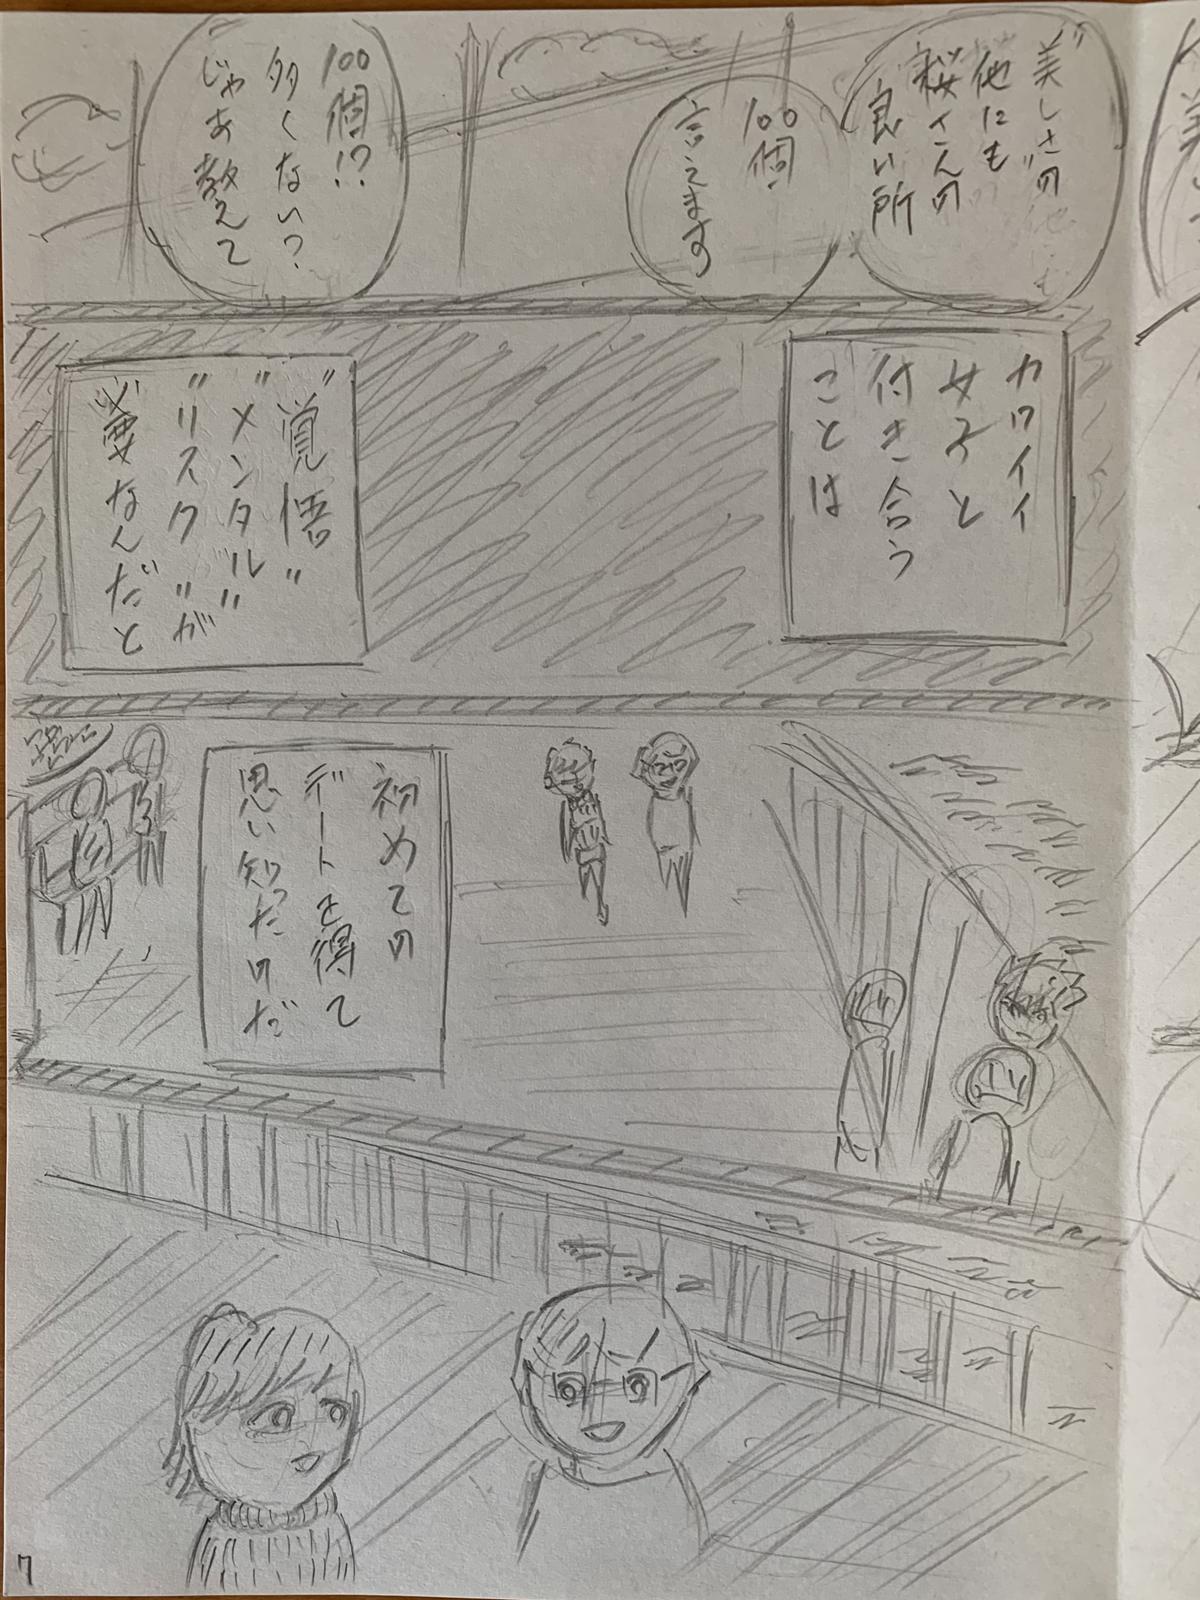 美しさの
他にも
桜さんの
良い所
100個
言えます
100個!?
多くない?
じゃあ教えて
カワイイ
女子と
付き合う
ことは
"覚悟"
"メンタル"
"リスク"が
必要なんだと
初めての
デートを得て
思い知ったのだ
7